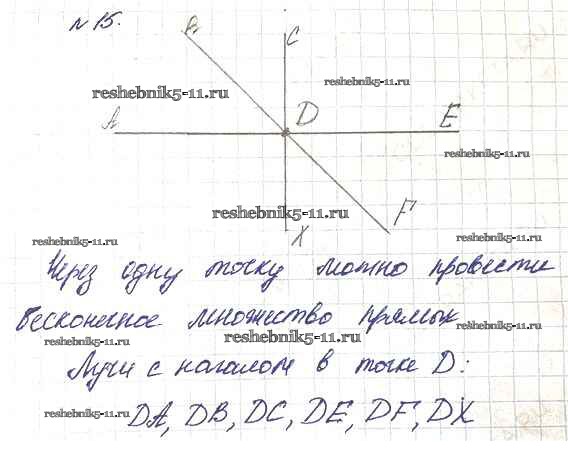 № 15.
B C
reshebnik5-11.ru
reshebnik5-11.ru
A D E
reshebnik5-11.ru
reshebnik5-11.ru
X F
reshebnik5-11.ru
Через одну точку можно провести
бесконечное множество прямых
reshebnik5-11.ru
reshebnik5-11.ru
Лучи с началом в точке D:
reshebnik5-11.ru
reshebnik5-11.ru
DA, DB, DC, DE, DF, DX